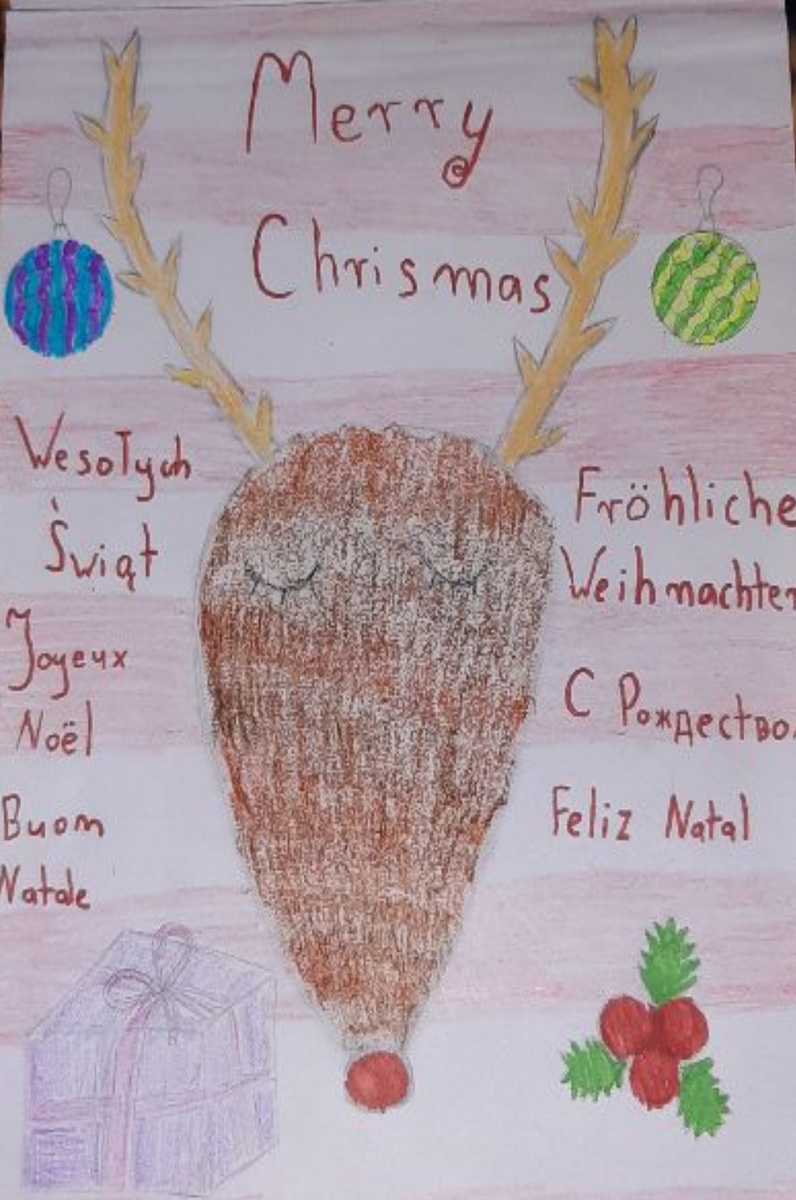 Merry
Chrismas
Wesołych
Świąt
Joyeux
Noël
Buon
Natale
Fröhliche
Weihnachten
С Рождество
Feliz Natal